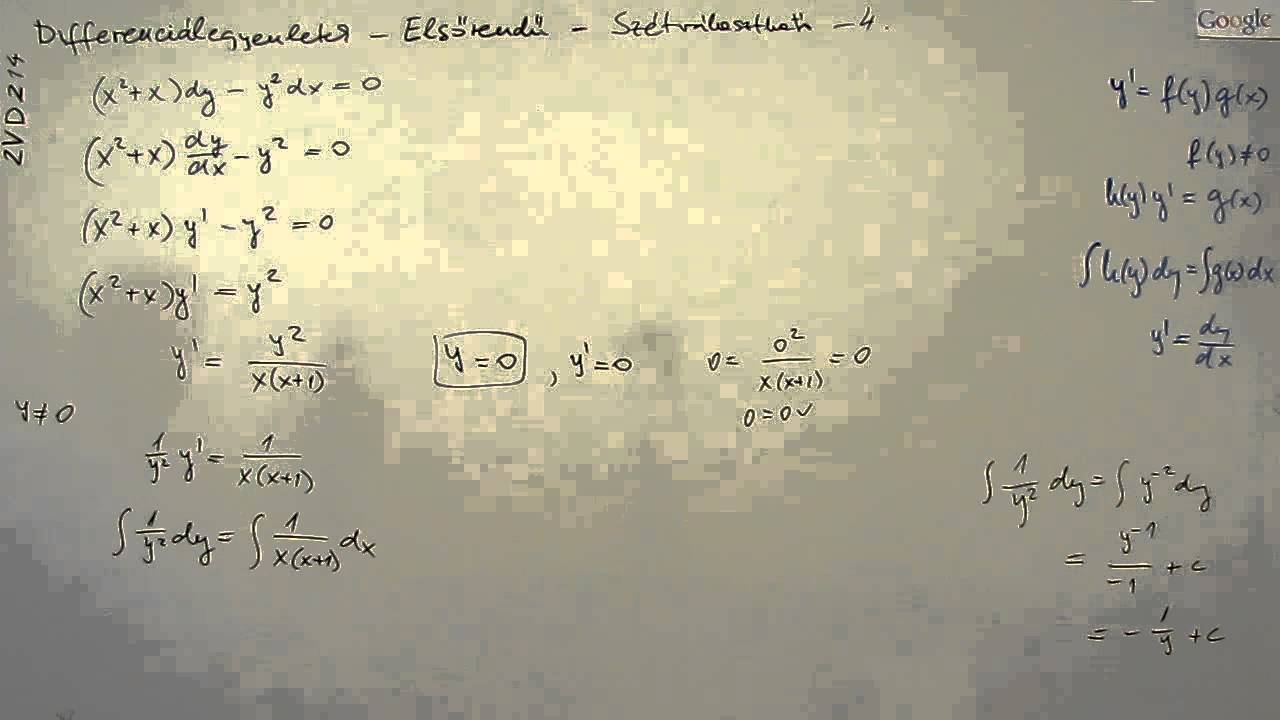 Differenciálegyenletek – Elsőrendű – Szétválasztható – 4.
Google
ZVD214
(x²+x)dy – y²dx = 0
(x²+x) dy/dx – y² = 0
(x²+x) y' – y² = 0
(x²+x)y' = y²
y' = y²/x(x+1)
y = 0 , y' = 0
0 = 0²/x(x+1) = 0
0 = 0 ✓
y ≠ 0
1/y² y' = 1/x(x+1)
∫ 1/y² dy = ∫ 1/x(x+1) dx
y' = f(y) g(x)
f(y) ≠ 0
h(y) y' = g(x)
∫ h(y) dy = ∫ g(x) dx
y' = dy/dx
∫ 1/y² dy = ∫ y⁻² dy
= y⁻¹/–1 + c
= – 1/y + c